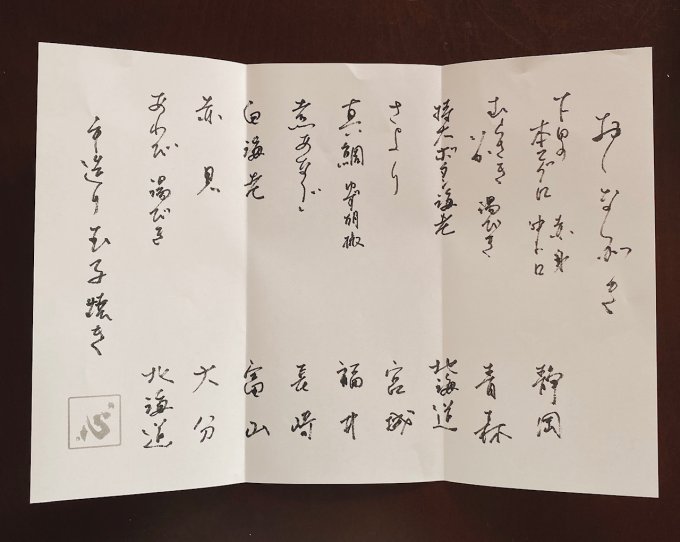 おしながき
下田の
本マグロ 赤身 中トロ 静岡
むらさきいか 湯びき 青森
特大ボタン海老 北海道
さより 宮城
真鯛 ゆず胡椒 福井
煮あなご 長崎
白海老 富山
赤貝 大分
あわび 湯びき 北海道
手造り玉子焼き
心